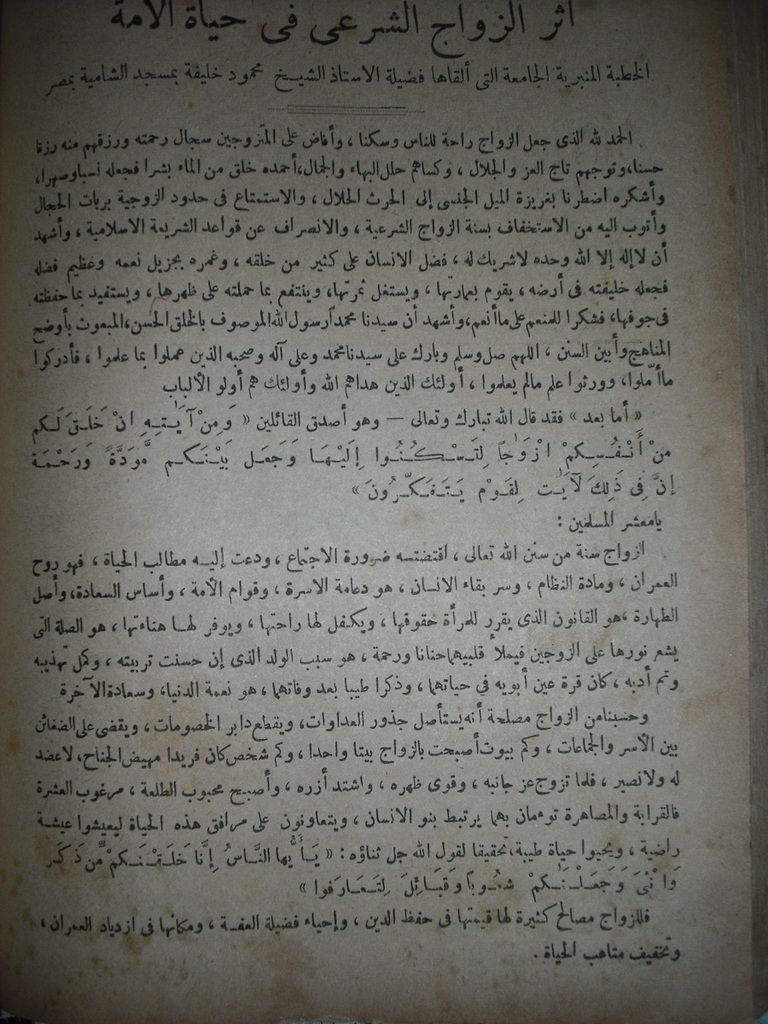 أثر الزواج الشرعى فى حياة الأمة
الخطبة المنبرية الجامعة التى ألقاها فضيلة الاستاذ الشيخ محمود خليفة بمسجد الشامية بمصر
الحمد لله الذى جعل الزواج راحة للناس وسكنا ، وأفاض على المتزوجين سجال رحمته ورزقهم منه رزقا
حسنا، وتوجهم تاج العز والجلال ، وكساهم حلل البهاء والجمال، أحمده خلق من الماء بشرا فجعله نسبا وصهرا،
وأشكره اضطرنا بغريزة الميل الجنسى إلى الحرث الحلال ، والاستمتاع فى حدود الزوجية بربات الحجال
وأتوب اليه من الاستخفاف بسنة الزواج الشرعية ، والانصراف عن قواعد الشريعة الاسلامية ، وأشهد
أن لا إله إلا الله وحده لاشريك له ، فضل الانسان على كثير من خلقه ، وغمره بجزيل نعمه وعظيم فضله
فجعله خليفته فى أرضه ، يقوم بعمارتها ، ويستغل ثمرتها، وينتفع بما حملته على ظهرها ، ويستفيد بما حفظته
فى جوفها، فشكرا للمنعم على ما أنعم، وأشهد أن سيدنا محمداً رسول الله الموصوف بالخلق الحسن، المبعوث بأوضح
المناهج وأبين السنن ، اللهم صل وسلم وبارك على سيدنا محمد وعلى آله وصحبه الذين عملوا بما علموا ، فأدركوا
ما أملوا، وورثوا علم مالم يعلموا ، أولئك الذين هداهم الله وأولئك هم أولو الألباب
« أما بعد » فقد قال الله تبارك وتعالى — وهو أصدق القائلين « وَمِنْ آيَاتِهِ انْ خَلَقَ لَكُم
مِنْ أَنْفُسِكِمْ ازْوَاجًا لِتَسْكُنُوا إِلَيْهَا وَجَعَلَ بَيْنَكم مَّوَدَّةً وَرَحْمَة
إِنَّ فِى ذلِكَ لَآيَات لِقَوْم يَتَفَكَّرُونَ »
يامعشر المسلمين :
الزواج سنة من سنن الله تعالى ، اقتضتسه ضرورة الاجتماع ، ودعت إليه مطالب الحياة ، فهو روح
العمران ، ومادة النظام ، وسر بقاء الانسان ، هو دعامة الاسرة ، وقوام الأمة ، وأساس السعادة، وأصل
الطهارة ،هو القانون الذى يقرر للمرأة حقوقها ، ويكفل لها راحتها ، ويوفر لها هناءتها ، هو الصلة التى
يشع نورها على الزوجين فيملأ قلبيهما حنانا ورحمة ، هو سبب الولد الذى إن حسنت تربيته ، وكمل تهذيبه
وتم أدبه ، كان قرة عين أبويه فى حياتهما ، وذكرا طيبا بعد وفاتهما ، هو نعمة الدنيا، وسعادة الآخرة
وحسبنا من الزواج مصلحة أنه يستأصل جذور العداوات، ويقطع دابر الخصومات ، ويقضى على الضغائن
بين الأسر والجماعات ، وكم بيوت أصبحت بالزواج بيتا واحدا ، وكم شخص كان فريدا مهيض الجناح، لاعضد
له ولا نصير ، فلما تزوج عز جانبه ، وقوى ظهره ، واشتد أزره ، وأصبح محبوب الطلعة ، مرغوب العشرة
فالقرابة والمصاهرة توءمان بهما يرتبط بنو الانسان ، ويتعاونون على مرافق هذه الحياة ليعيشوا عيشة
راضية ، ويحيوا حياة طيبة، تحقيقا لقول الله جل ثناؤه : « يَاأَيُّهَا النَّاسُ إِنَّا خَلَقْنَكم مِّن ذَكَر
وَانْثَى وَجَعَلْنَاكمْ شُعُوباً وَقَبَائِلَ لِتَعَارَفُوا »
فللزواج مصالح كثيرة لها قيمتها فى حفظ الدين ، وإحياء فضيلة العفة ، ومكانها فى ازدياد العمران ،
وتخفيف متاعب الحياة .